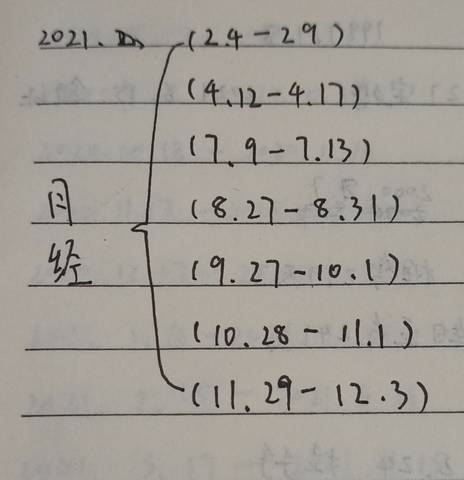 2021. (2.4-2.9)
(4.12-4.17)
(7.9-7.13)
(8.27-8.31)
月 (9.27-10.1)
经 (10.28-11.1)
(11.29-12.3)